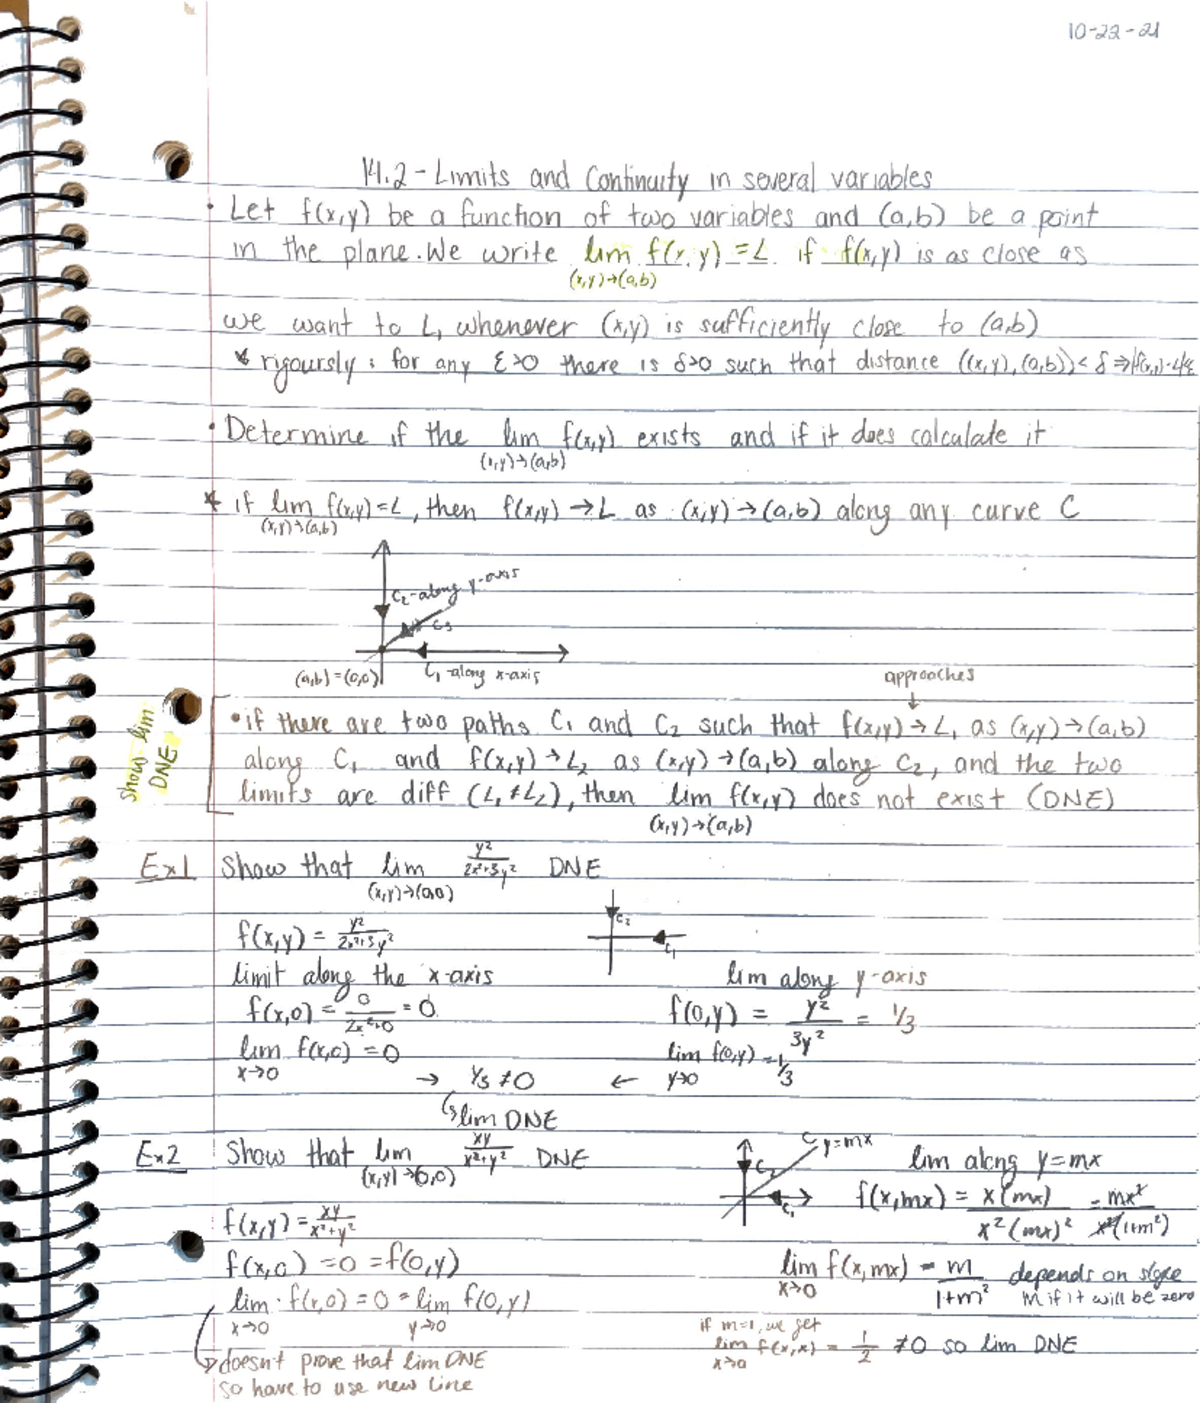 10-22-21
14.2 - Limits and Continuity in several variables
• Let f(x,y) be a function of two variables and (a,b) be a point
in the plane. We write lim f(x,y) = L if f(x,y) is as close as
(x,y)→(a,b)
we want to L, whenever (x,y) is sufficiently close to (a,b)
* rigoursly: for any ε>0 there is δ>0 such that distance ((x,y),(a,b))<δ ⇒ |f(x,y)-L|<ε
• Determine if the lim f(x,y) exists and if it does calculate it
(x,y)→(a,b)
* if lim f(x,y)=L, then f(x,y)→L as (x,y)→(a,b) along any curve C
(x,y)→(a,b)
C₂-along y-axis
C₃
(a,b)=(0,0) C₁-along x-axis
approaches
show lim DNE
• if there are two paths C₁ and C₂ such that f(x,y)→L₁ as (x,y)→(a,b)
along C₁ and f(x,y)→L₂ as (x,y)→(a,b) along C₂, and the two
limits are diff (L₁≠L₂), then lim f(x,y) does not exist (DNE)
(x,y)→(a,b)
Ex1 Show that lim y²/2x²+3y² DNE
(x,y)→(0,0)
C₂
C₁
f(x,y) = y²/2x²+3y²
limit along the x-axis
f(x,0) = 0/2x²+0 = 0
lim f(x,0) = 0
x→0
lim along y-axis
f(0,y) = y²/3y² = 1/3
lim f(0,y) = 1/3
y→0
→ 1/3 ≠ 0 ←
↳ lim DNE
Ex2 Show that lim xy/x²+y² DNE
(x,y)→(0,0)
C y=mx
C₂
C₁
f(x,y) = xy/x²+y²
f(x,0) = 0 = f(0,y)
lim f(x,0) = 0 = lim f(0,y)
x→0 y→0
↳ doesn't prove that lim DNE
so have to use new line
lim along y=mx
f(x,mx) = x(mx)/x²(mx)² = mx²/x²(1+m²)
lim f(x,mx) = m/1+m² depends on slope
x→0 m if it will be zero
if m=1, we get
lim f(x,x) = 1/2 ≠ 0 so lim DNE
x→0